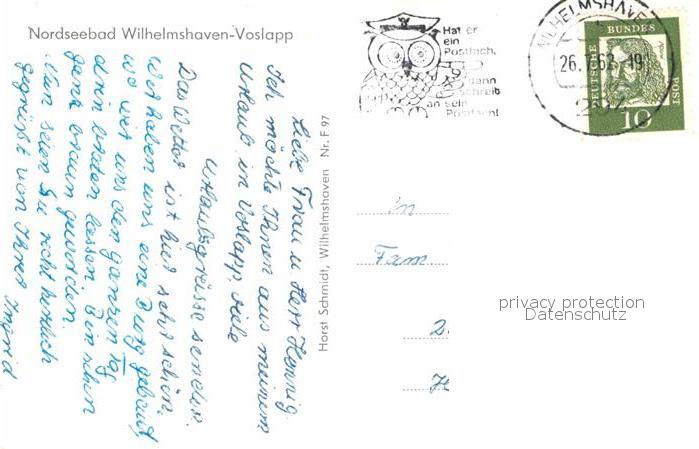 Nordseebad Wilhelmshaven-Voslapp
Liebe Frau u Herr Hennig.
Ich möchte Ihnen aus meinem
Urlaub in Voslapp, viele
Urlaubsgrüsse senden.
Das Wetter ist hier sehr schön.
Wir haben uns eine Burg gebaut,
wo wir uns den ganzen Tag
drin braten lassen. Bin schon
ganz braun geworden.
Nun seien Sie recht herzlich
gegrüsst von Ihrer
Horst Schmidt, Wilhelmshaven Nr. F 97
Hat er
ein
Postfach,
dann
schreib
an sein
Postfach!
WILHELMSHAVEN
26.
-19
DEUTSCHE BUNDESPOST
10
An
Fam.
2
H
privacy protection
Datenschutz